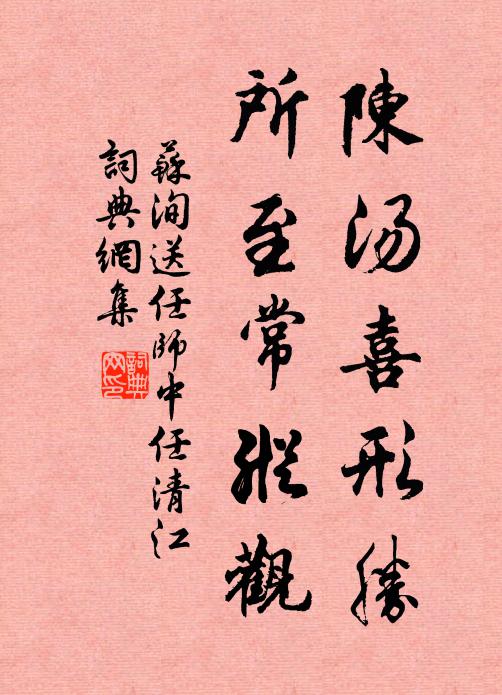 陳湯喜形勝
所至常縱觀
蘇洵送任師中任清江
詞典網集
詞典網印